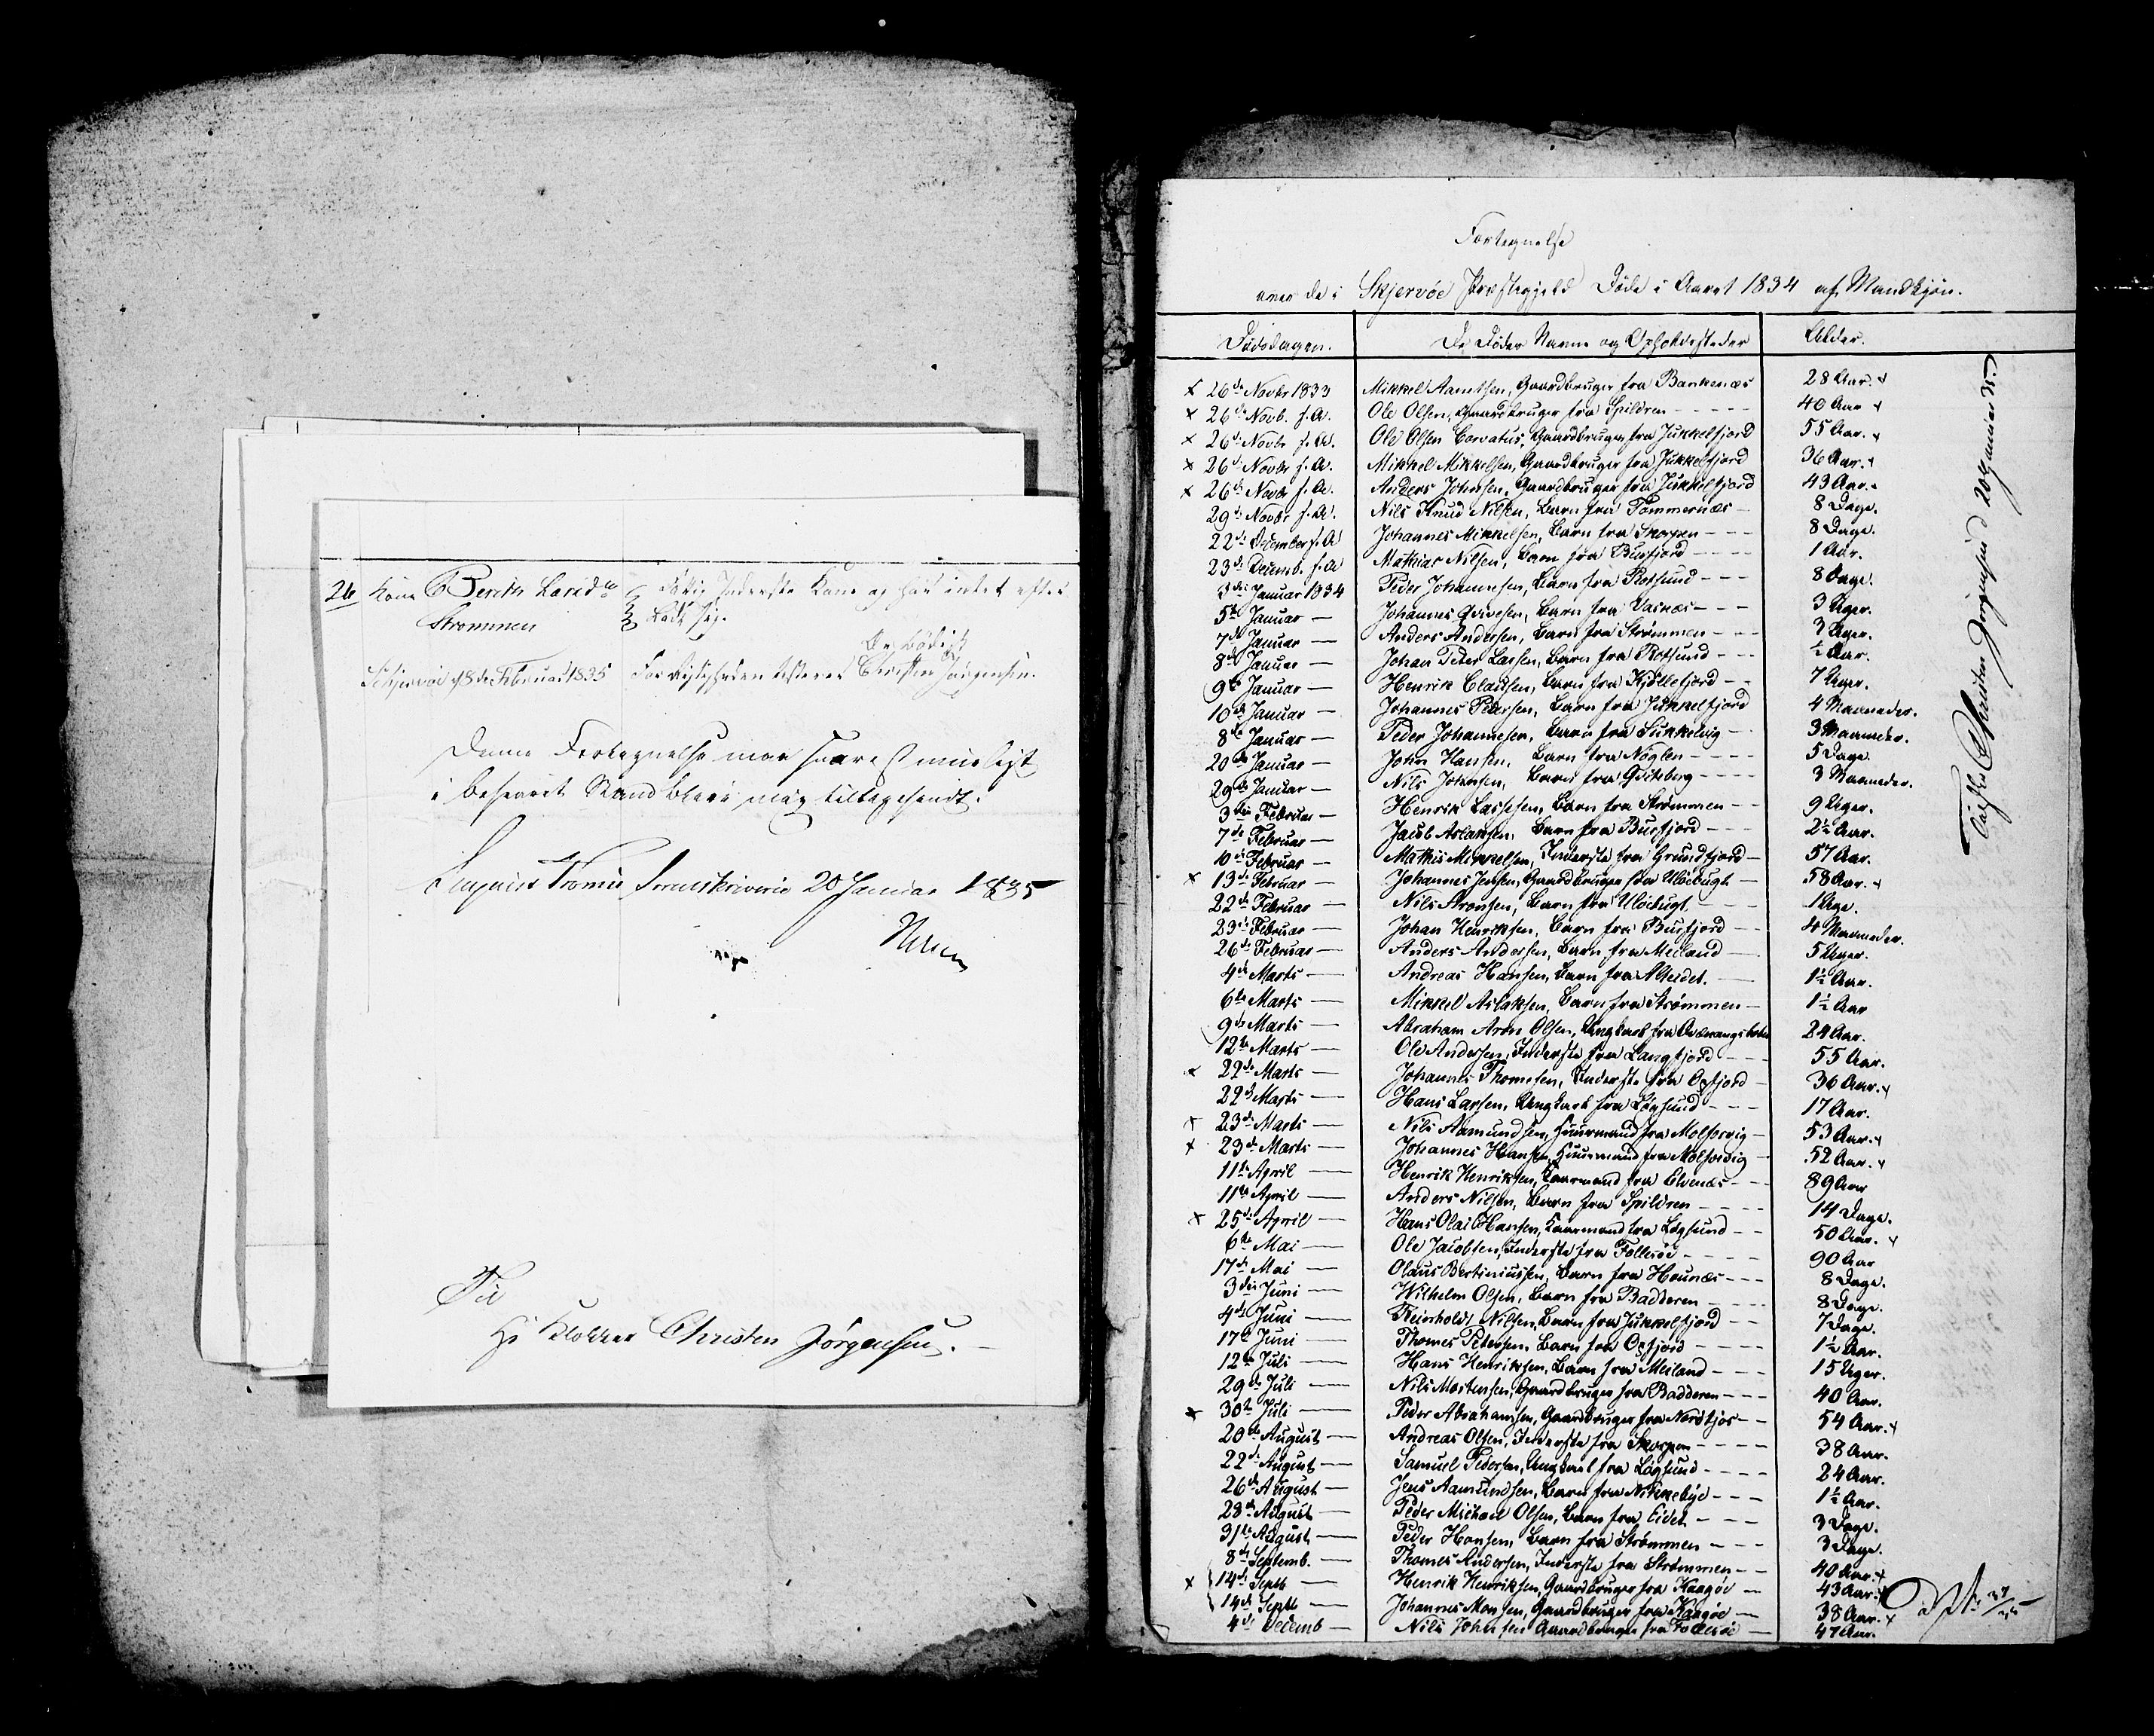 26 Kone Berith Larsd. fattig Inderste Kone og har intet efter
Strømmen ladt sig.
Ærbødigst
Schjervøe d 8de Februar 1835 For Rigtigheden testerer Christen Jørgensen.
Denne Fortegnelse maa snarest mueligt
i besvaret Stand blive mig tilbagesendt.
Tromsø Sorenskriverie 20 Januar 1835
Til
Hr Klokker Christen Jørgensen.
Fortegnelse
over de i Skjervöe Præstegjeld Døde i Aaret 1834 af Mandkjøn.
Dødsdagen. De Dødes Navne og Opholdssteder Alder.
x 26de Novbr 1833 Mikkel Aamtsen, Gaardbruger fra Bankenæs 28 Aar.
x 26de Novb. f. A. Ole Olsen, Gaardbruger fra Spildren 40 Aar
x 26de Novbr f. A. Ole Olsen Corvatus, Gaardbruger fra Jukkelfjord 55 Aar.
x 26de Novbr f. A. Mikkel Mikkelsen, Gaardbruger fra Jukkelfjord 36 Aar.
x 26de Novbr f. A. Anders Johnsen, Gaardbruger fra Jukkelfjord 43 Aar.
29de Novbr f. A. Nils Knud Nilsen, Barn fra Tømmernæs 8 Dage.
22de December f. A Johannes Mikkelsen, Barn fra Skorpen 8 Dage.
23de Decemb. f. A Mathias Nilsen, Barn fra Burfjord 1 Aar.
3die Januar 1834 Peder Johannesen, Barn fra Rotsund 8 Dage.
5te Januar Johannes Qvivesen, Barn fra Vasnæs 3 Uger.
7de Januar Anders Andersen, Barn fra Strømmen 3 Uger.
8de Januar Johan Peter Larsen, Barn fra Rotsund ½ Aar.
9de Januar Henrik Claussen, Barn fra Kjöllefjord 7 Uger.
10de Januar Johannes Pedersen, Barn fra Jukkelfjord 4 Maaneder.
8de Januar Peder Johannesen, Barn fra Sukkelvig 3 Maaneder.
20de Januar John Hansen, Barn fra Nöglen 5 Dage.
29de Januar Nils Johnsen, Barn fra Qviteberg 3 Maaneder.
3die Februar Henrik Lassesen, Barn fra Strømmen 9 Uger.
7de Februar Jacob Aslaksen, Barn fra Burfjord 2½ Aar.
10de Februar Mathis Mikkelsen, Inderste fra Grundfjord 57 Aar.
x 13de Februar Johannes Jensen, Gaardbruger fra Ulöebugt 58 Aar.
22de Februar Nils Aronsen, Barn fra Ulöebugt 1 Uge.
23de Februar Johan Henriksen, Barn fra Burfjord 4 Maaneder.
26de Februar Anders Andersen, Barn fra Meiland 5 Uger.
4de Marts Andreas Hansen, Barn fra Alteidet. 1½ Aar.
6te Marts Mikkel Aslaksen, Barn fra Strømmen 1½ Aar
9de Marts Abraham Aron Olsen, Ungkarl fra Qvænangsbotn 24 Aar.
12te Marts Ole Andersen, Inderste fra Langfjord 55 Aar.
x 22de Marts Johannes Thomesen, Inderste fra Oxfjord 36 Aar.
22de Marts Hans Larsen, Ungkarl fra Løgsund 17 Aar.
x 23de Marts Nils Aamundsen, Huusmand fra Molsvig 53 Aar.
x 23de Marts Johannes Hansen, Huusmand fra Molsvig 52 Aar.
11te April Henrik Henriksen, Kaarmand fra Elvenæs 89 Aar
11te April Anders Nilsen, Barn fra Spildren 14 Dage.
x 25de April Hans Olai Hansen, Kaarmand fra Løgsund 50 Aar.
6te Mai Ole Jacobsen, Inderste fra Follesöe 90 Aar
17de Mai Olaus Bertiniussen, Barn fra Hounæs 8 Dage.
3die Juni Wilhelm Olsen, Barn fra Badderen 8 Dage.
4de Juni Reinholdt Nilsen, Barn fra Jukkelfjord 7 Dage.
17de Juni Thomes Petersen, Barn fra Oxfjord 1½ Aar.
12te Juli Hans Henriksen, Barn fra Meiland 15 Uger.
29de Juli Nils Mortensen, Gaardbruger fra Badderen 40 Aar.
x 30te Juli Peder Abrahamsen, Gaardbruger fra Nordfjos 54 Aar.
20de August Andreas Olsen, Inderste fra Skorpen 38 Aar.
22de August Samuel Pedersen, Ungkarl fra Løgsund 24 Aar.
26de August Jens Aamundsen, Barn fra Nikkebye 1½ Aar.
28de August Peder Michael Olsen, Barn fra Eidet 3 Dage.
31te August Peder Hansen, Barn fra Strømmen 3 Dage.
8de Septemb. Thomes Andersen, Inderste fra Strømmen 40 Aar.
x 14de Septb Henrik Henriksen, Gaardbruger fra Kaagöe 43 Aar.
14de Septb Johannes Monsen, Gaardbruger fra Kaagöe 38 Aar.
4de Decemb Nils Johnsen Gaardbruger fra Follesöe 47 Aar.
Christen Jørgensen d 20 Januar 35